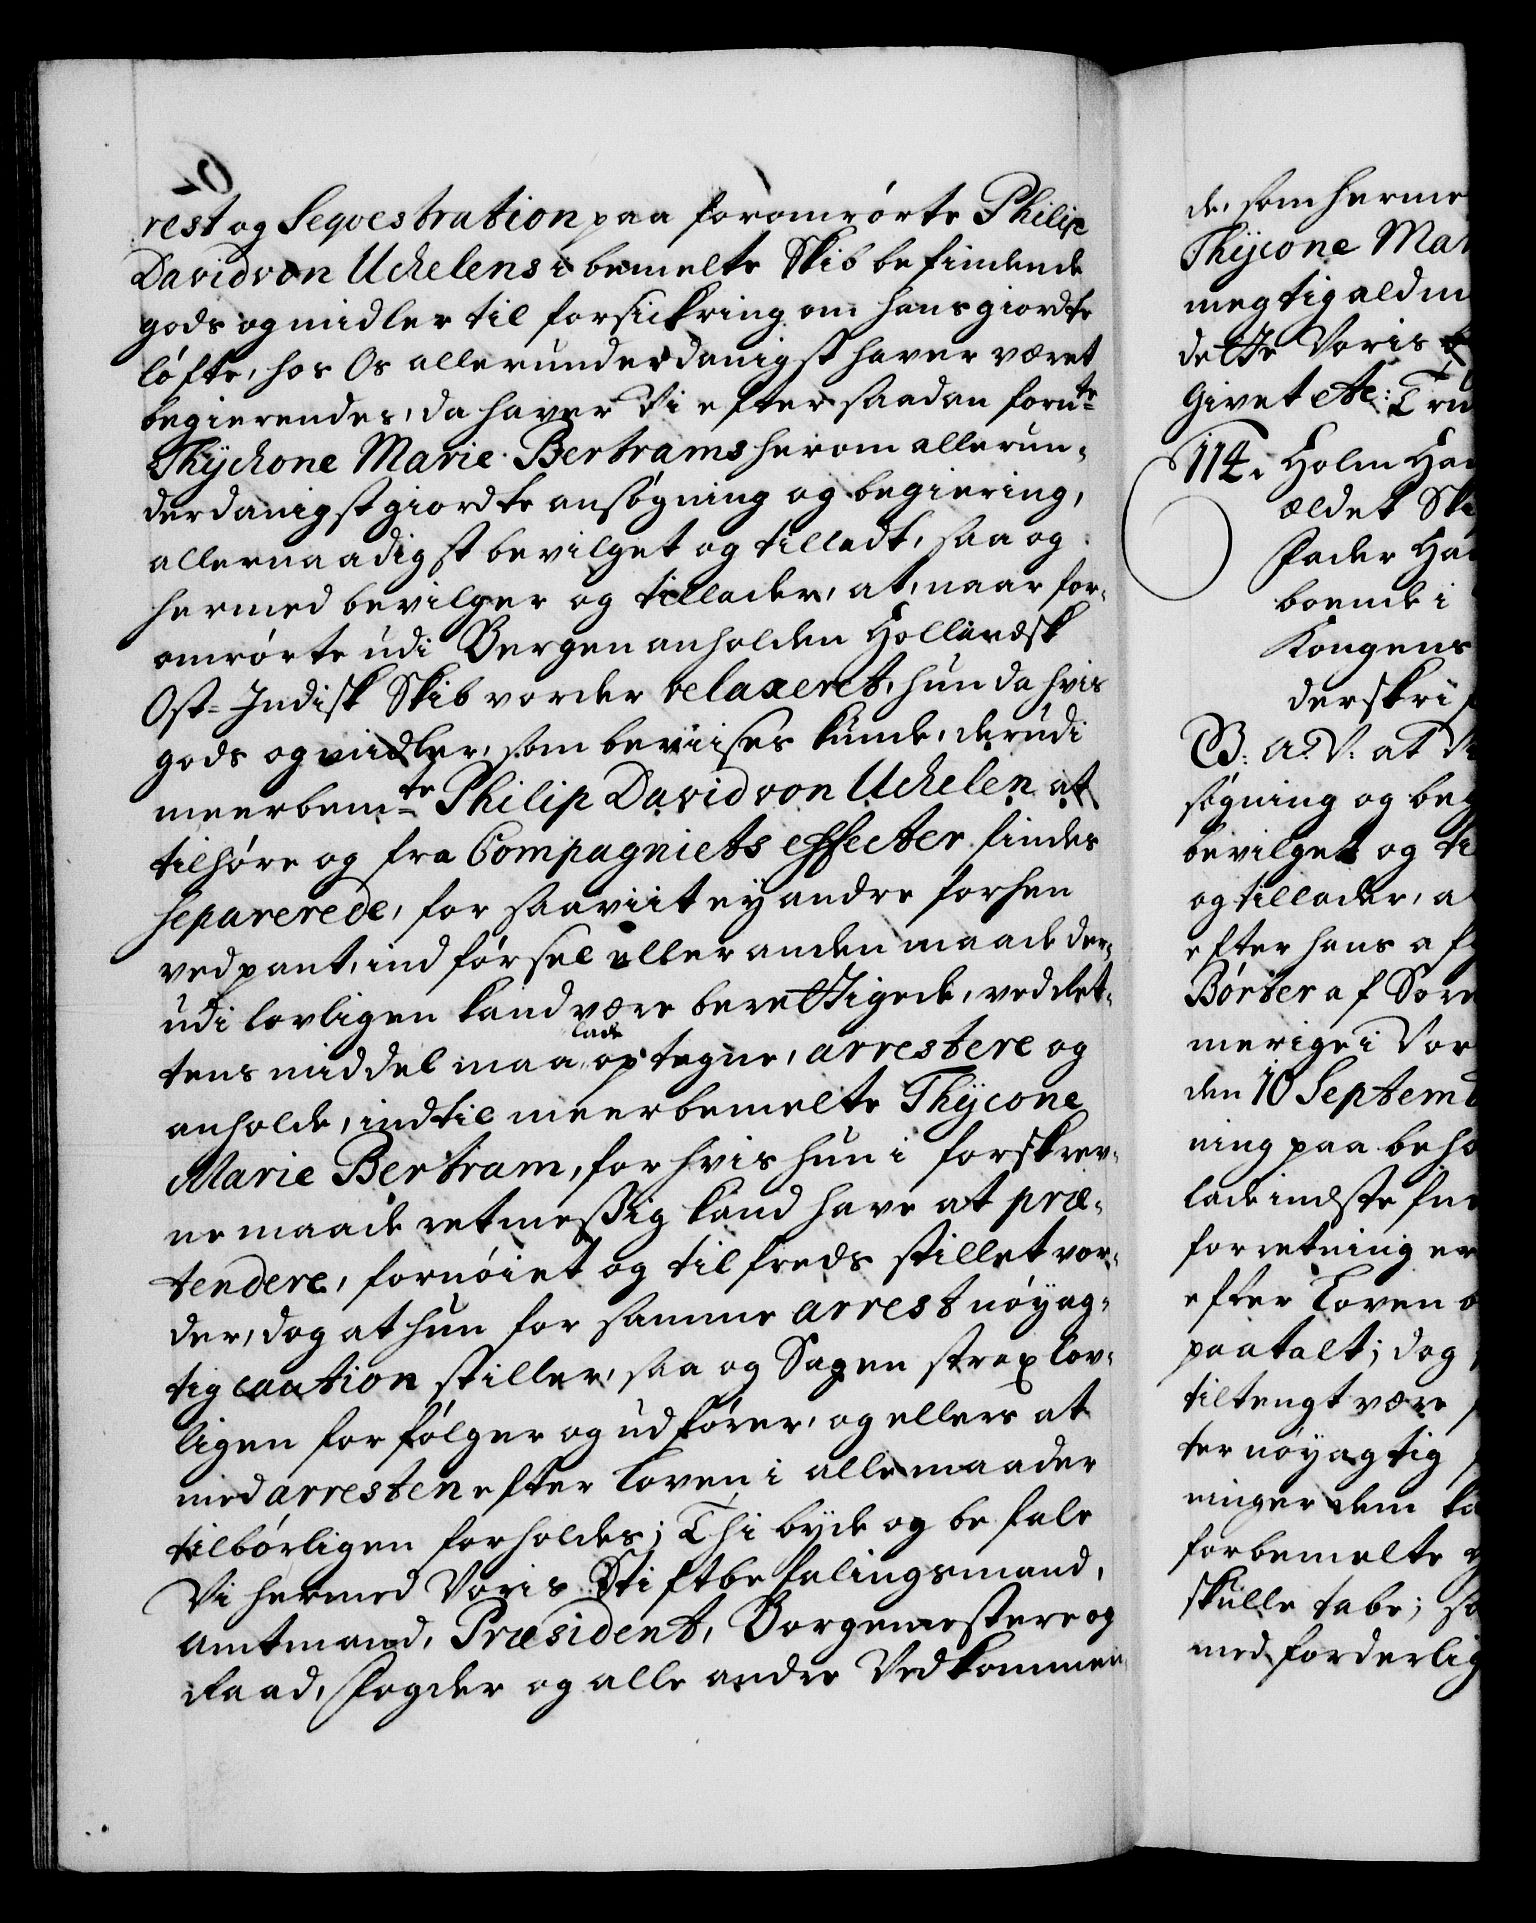 rest og Seqvestration paa foromrörte Philip
David von Uchelens i bemelte Skib befindende
gods og midler til forsickring om hans giordte
löfte, hos Os allerunderdanigst haver været
begierendes, da haver Vi efter saadan forn.te
Thÿchone Marie Bertrams herom allerun-
derdanigst giordte ansögning og begiering,
allernaadigst bevilget og tilladt, saa og
hermed bevilger og tillader, at, naar for-
omrörte udi Bergen anholden Hollandsk
Ost-Indisk Skib vorder relaxeret, hun da hvis
gods og midler, som beviises kunde, derudi
meerbem.te Philip David von Uchelen at
tilhöre og fra Compagniets effecter findes
separerede, for saaviit eÿ andre forhen
ved pant, indförsel eller anden maade der-
udi lovligen kand være berettigede, ved det-
tens middel maa lade optegne, arrestere og
anholde, indtil meerbemelte Thÿcone
Marie Bertram, for hvis hun i forskrev-
ne maade retmessig kand have at præ-
tendere, fornöiet og tilfreds stillet vor-
der, dog at hun for samme arrest nöÿag-
tig caution stiller, saa og Sagen strax lov-
ligen forfölger og udförer, og ellers at
med arresten efter Loven i alle maader
tilbörligen forholdes; Thi bÿde og befale
Vi hermed Voris Stiftbefalingsmand,
Amtmand, Præsident, Borgemestere og
Raad, Fogder og alle andre Vedkommen-
de, som herme
Thÿcone Mar
megtig ald m
dette Voris
Givet etc: Fru
114. Holm Ha
ældet Ski
Fader Ha
boende i
Kongens
derskri
B: A: V: at V
sögning og beg
bevilget og ti
og tillader, a
efter hans af
Börbera f Sore
merige i Vor
den 10 Septemb
ning paa beho
lade indstefne
forretning er
efter Loven o
paatalt; dog
tiltengt være
ter nöÿagtig
ninger dem ka
forbemelte
skulle tabe; so
med forderlig